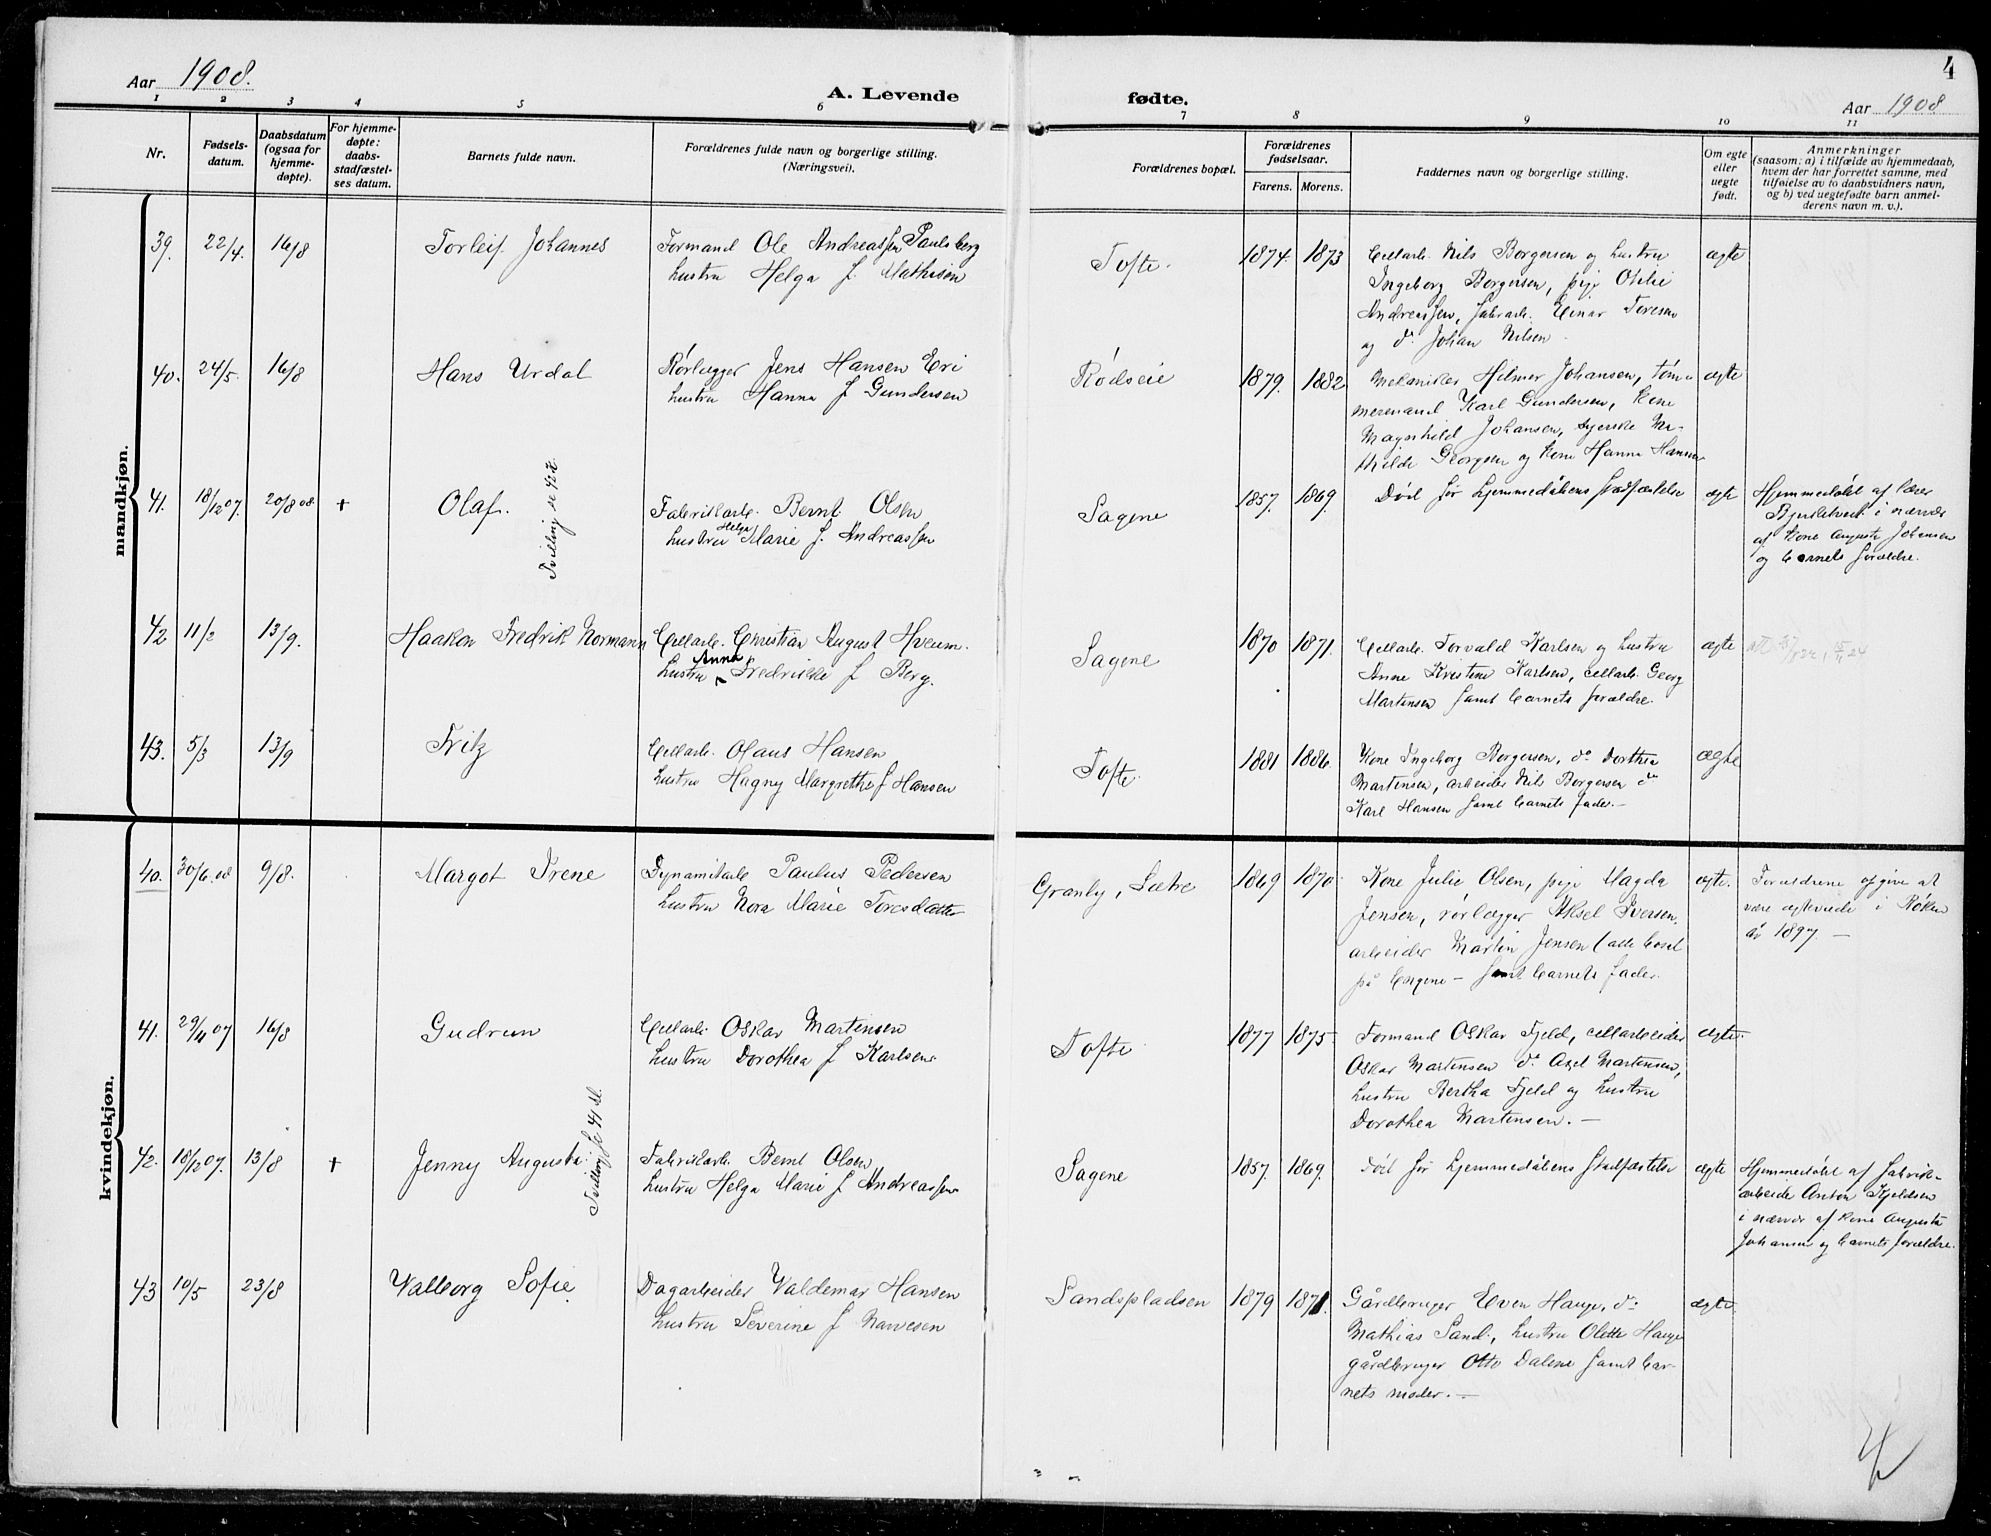 Aar 1908.
A. Levende
fødte.
4
Aar 1908
1 2 3 4 5 6 7 8 9 10 11
Nr.
Fødsels-
datum.
Daabsdatum
(ogsaa for
hjemme-
døpte).
For hjemme-
døpte:
daabs-
stadfæstel-
ses datum.
Barnets fulde navn.
Forældrenes fulde navn og borgerlige stilling.
(Næringsvei).
Forældrenes bopæl.
Forældrenes
fødselsaar.
Farens. Morens.
Faddernes navn og borgerlige stilling.
Om egte
eller
uegte
født.
Anmerkninger
(saasom: a) i tilfælde av hjemmedaab,
hvem der har forrettet samme, med
tilføielse av to daabsvidners navn,
og b) ved uegtefødte barn anmel-
derens navn m. v.).
mandkjøn.
39. 22/4. 16/8 Torleif Johannes
Formand Ole Andreassen Paulsberg
hustru Helga f. Mathisen
Tofte. 1874. 1873
Cellarb. Nils Borgersen og hustru
Ingeborg Borgersen, pige Othilie
Andreassen, fabrarb. Einar Toresen
og do Johan Nilsen.
ægte
40. 24/5. 16/8 Hans Urdal
Rørlægger Jens Hansen Eri
hustru Hanna f Gundersen
Rødseie 1879. 1882
Mekaniker Hilmer Johansen, tøm-
mermand Karl Gundersen, kone
Magnhild Johansen, syerske Ma-
thilde Georgsen og kone Hanna Hansen
ægte
41. 18/12 07. 20/8 08 + Olaf.
Tvilling se 42 k.
Fabrikarb. Bernt Olsen
hustru Helga Marie f. Andreassen
Sagene 1857. 1869.
Död før hjemmedåbens stadfæstelse
ægte
Hjemmedøbt af lærer
i nærvær
af kone Augusta Johansen
og barnets forældre.
42 11/2 13/9. Haakon Fredrik Normann
Cellarb. Christian August Hveem.
hustru Anna Fredrikke f Berg.
Sagene 1870 1871.
Cellarb. Torvald Karlsen og hustru
Anne Kristine Karlsen, cellarb. Georg
Martinsen samt barnets forældre.
ægte
43. 5/3 13/9 Fritz
Cellarb. Olaus Hansen
hustru Hagny Margrethe f Hansen
Tofte. 1881 1886.
Kone Ingeborg Borgersen, do Dorthea
Martensen, arbeider Nils Borgersen do
Karl Hansen samt barnets fader.—
ægte
kvindekjøn.
40. 30/6. 08 9/8. Margot Irene
Dynamitarb Paulus Pedersen
hustru Nora Marie Toresdatter
Granly, Sætre 1869 1870.
Kone Julie Olsen, pige Magda
Jensen, rørlægger Aksel Iversen,
arbeider Martin Jensen (alle bosat
på Engene — samt barnets fader.
ægte.
Forældrene opgive at
være egteviede i Røken
år 1897. —
41. 29/11 07 16/8 Gudrun
Cellarb. Oskar Martensen
hustru Dorothea f Karlsen
Tofte. 1877 1875.
Formand Oskar Fjeld, cellarbeider
Oskar Martensen do Axel Martensen,
hustru Bertha Fjeld og hustru
Dorothea Martensen. —
ægte.
42. 18/12 07. 13/8 + Jenny Augusta.
Tvilling se 41 M.
Fabrikarb. Bernt Olsen
hustru Helga Marie f Andreassen
Sagene 1857 1869.
Död før hjemmedåbens stadfæstelse
ægte
Hjemmedøbt af fabrik-
arbeide Anton Kjeldsen
i nærvær af kone Augusta
Johansen og barnets forældre.
43 10/5 23/8 Valborg Sofie.
Dagarbeider Valdemar Hansen
hustru Severine f Narvesen
Sandspladsen 1879 1871.
Gårdbruger Even Hauge, do
Mathias Sand, hustru Olette Hauge
gårdbruger Otto Dalene samt bar-
nets moder. —
ægte.